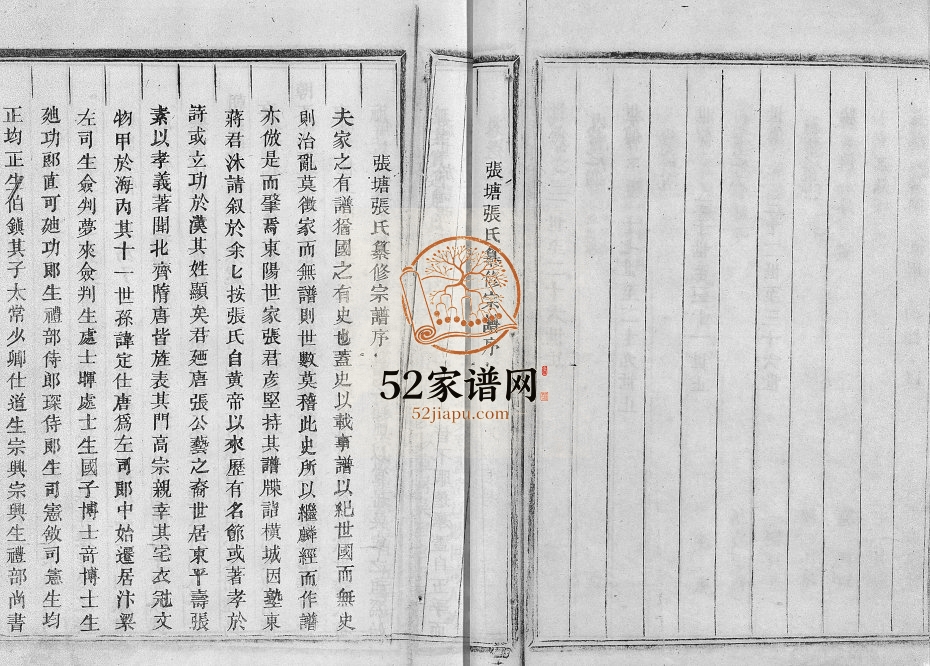 張塘張氏纂修宗譜序
張塘張氏纂修宗譜序
夫家之有譜猶國之有史也蓋史以載事譜以紀世國而無史
則治亂莫徵家而無譜則世數莫稽此史所以繼麟經而作譜
亦倣是而肇焉東陽世家張君彥堅持其譜牒詣橫城因塾東
蔣君洙請叙於余匕按張氏自黃帝以來歷有名節或著孝於
詩或立功於漢其姓顯矣君廼唐張公藝之裔世居東平壽張
素以孝義著聞北齊隋唐皆旌表其門高宗親幸其宅衣冠文
物甲於海內其十一世孫諱定仕唐爲左司郎中始遷居汴梁
左司生僉判夢來僉判生處士暉處士生國子博士竒博士生
廸功郎直可廸功郎生禮部侍郎琛侍郎生司憲敘司憲生均
正均正生伯鎮其子太常少卿仕道生宗興宗興生禮部尚書
52家谱网
52jiapu.com